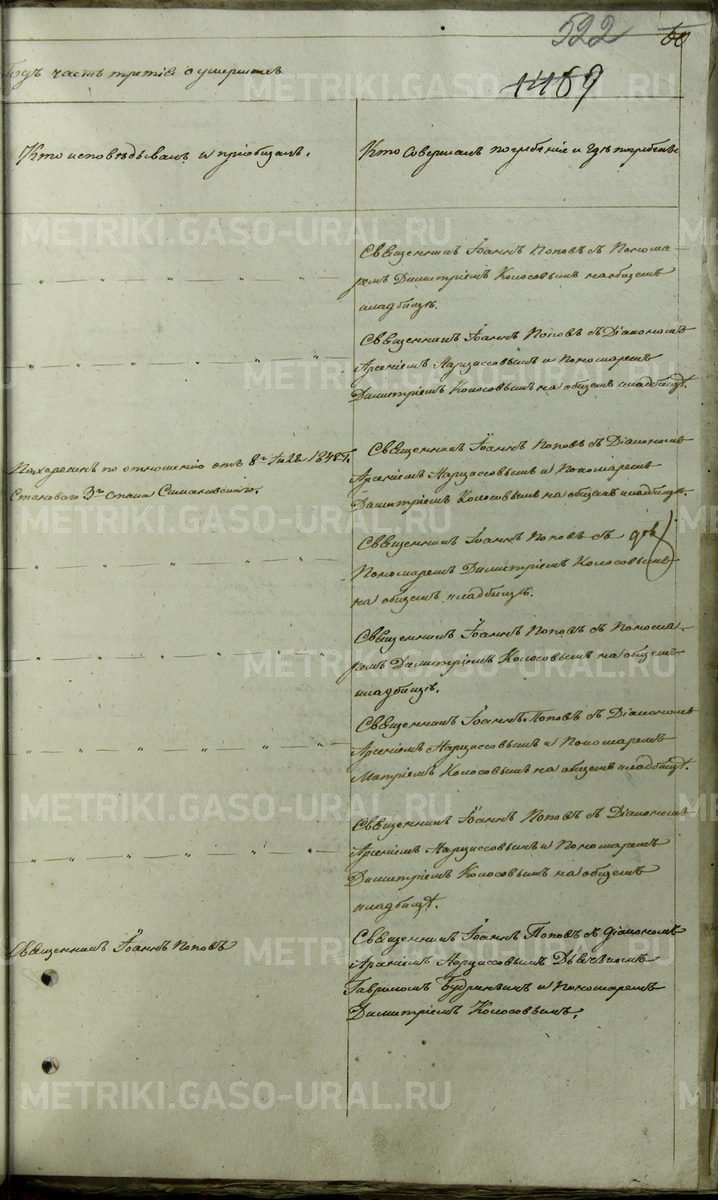 522
50
1489
Годъ часть третіѣ о умершихъ
Кто исповѣдывалъ и пріобщалъ.
Кто Совершалъ погребѣніе и Гдѣ погребенъ
Священникъ Іоаннъ Поповъ съ Понома-
ремъ Димитріемъ Колосовымъ на общемъ
кладбищѣ.
Священникъ Іоаннъ Поповъ съ Діакономъ
Арсеніемъ Нарциссовымъ и Пономаремъ
Димитріемъ Колосовымъ на общемъ кладбищѣ.
Похороненъ по отношенію отъ 8го 1848 Г.
Становаго 3го стана Симановскаго.
Священникъ Іоаннъ Поповъ съ Діакономъ
Арсеніемъ Нарциссовымъ и Пономаремъ
Димитріемъ Колосовымъ на общемъ кладбищѣ.
Священникъ Іоаннъ Поповъ съ
Пономаремъ Димитріемъ Колосовымъ
на общемъ кладбищѣ.
Священникъ Іоаннъ Поповъ съ Понома-
ремъ Димитріемъ Колосовымъ на общемъ
кладбищѣ.
Священникъ Іоаннъ Поповъ съ Діакономъ
Арсеніемъ Нарциссовымъ и Пономаремъ
Колосовымъ на общемъ кладбищѣ.
Священникъ Іоаннъ Поповъ съ Діакономъ
Арсеніемъ Нарциссовымъ и Пономаремъ
Димитріемъ Колосовымъ на общемъ
кладбищѣ.
Священникъ Іоаннъ Поповъ
Священникъ Іоаннъ Поповъ съ діакономъ
Арсеніемъ Нарциссовымъ Дьячкомъ
Гавриломъ Будринымъ и Пономаремъ
Димитріемъ Колосовымъ.
METRIKI.GASO-URAL.RU